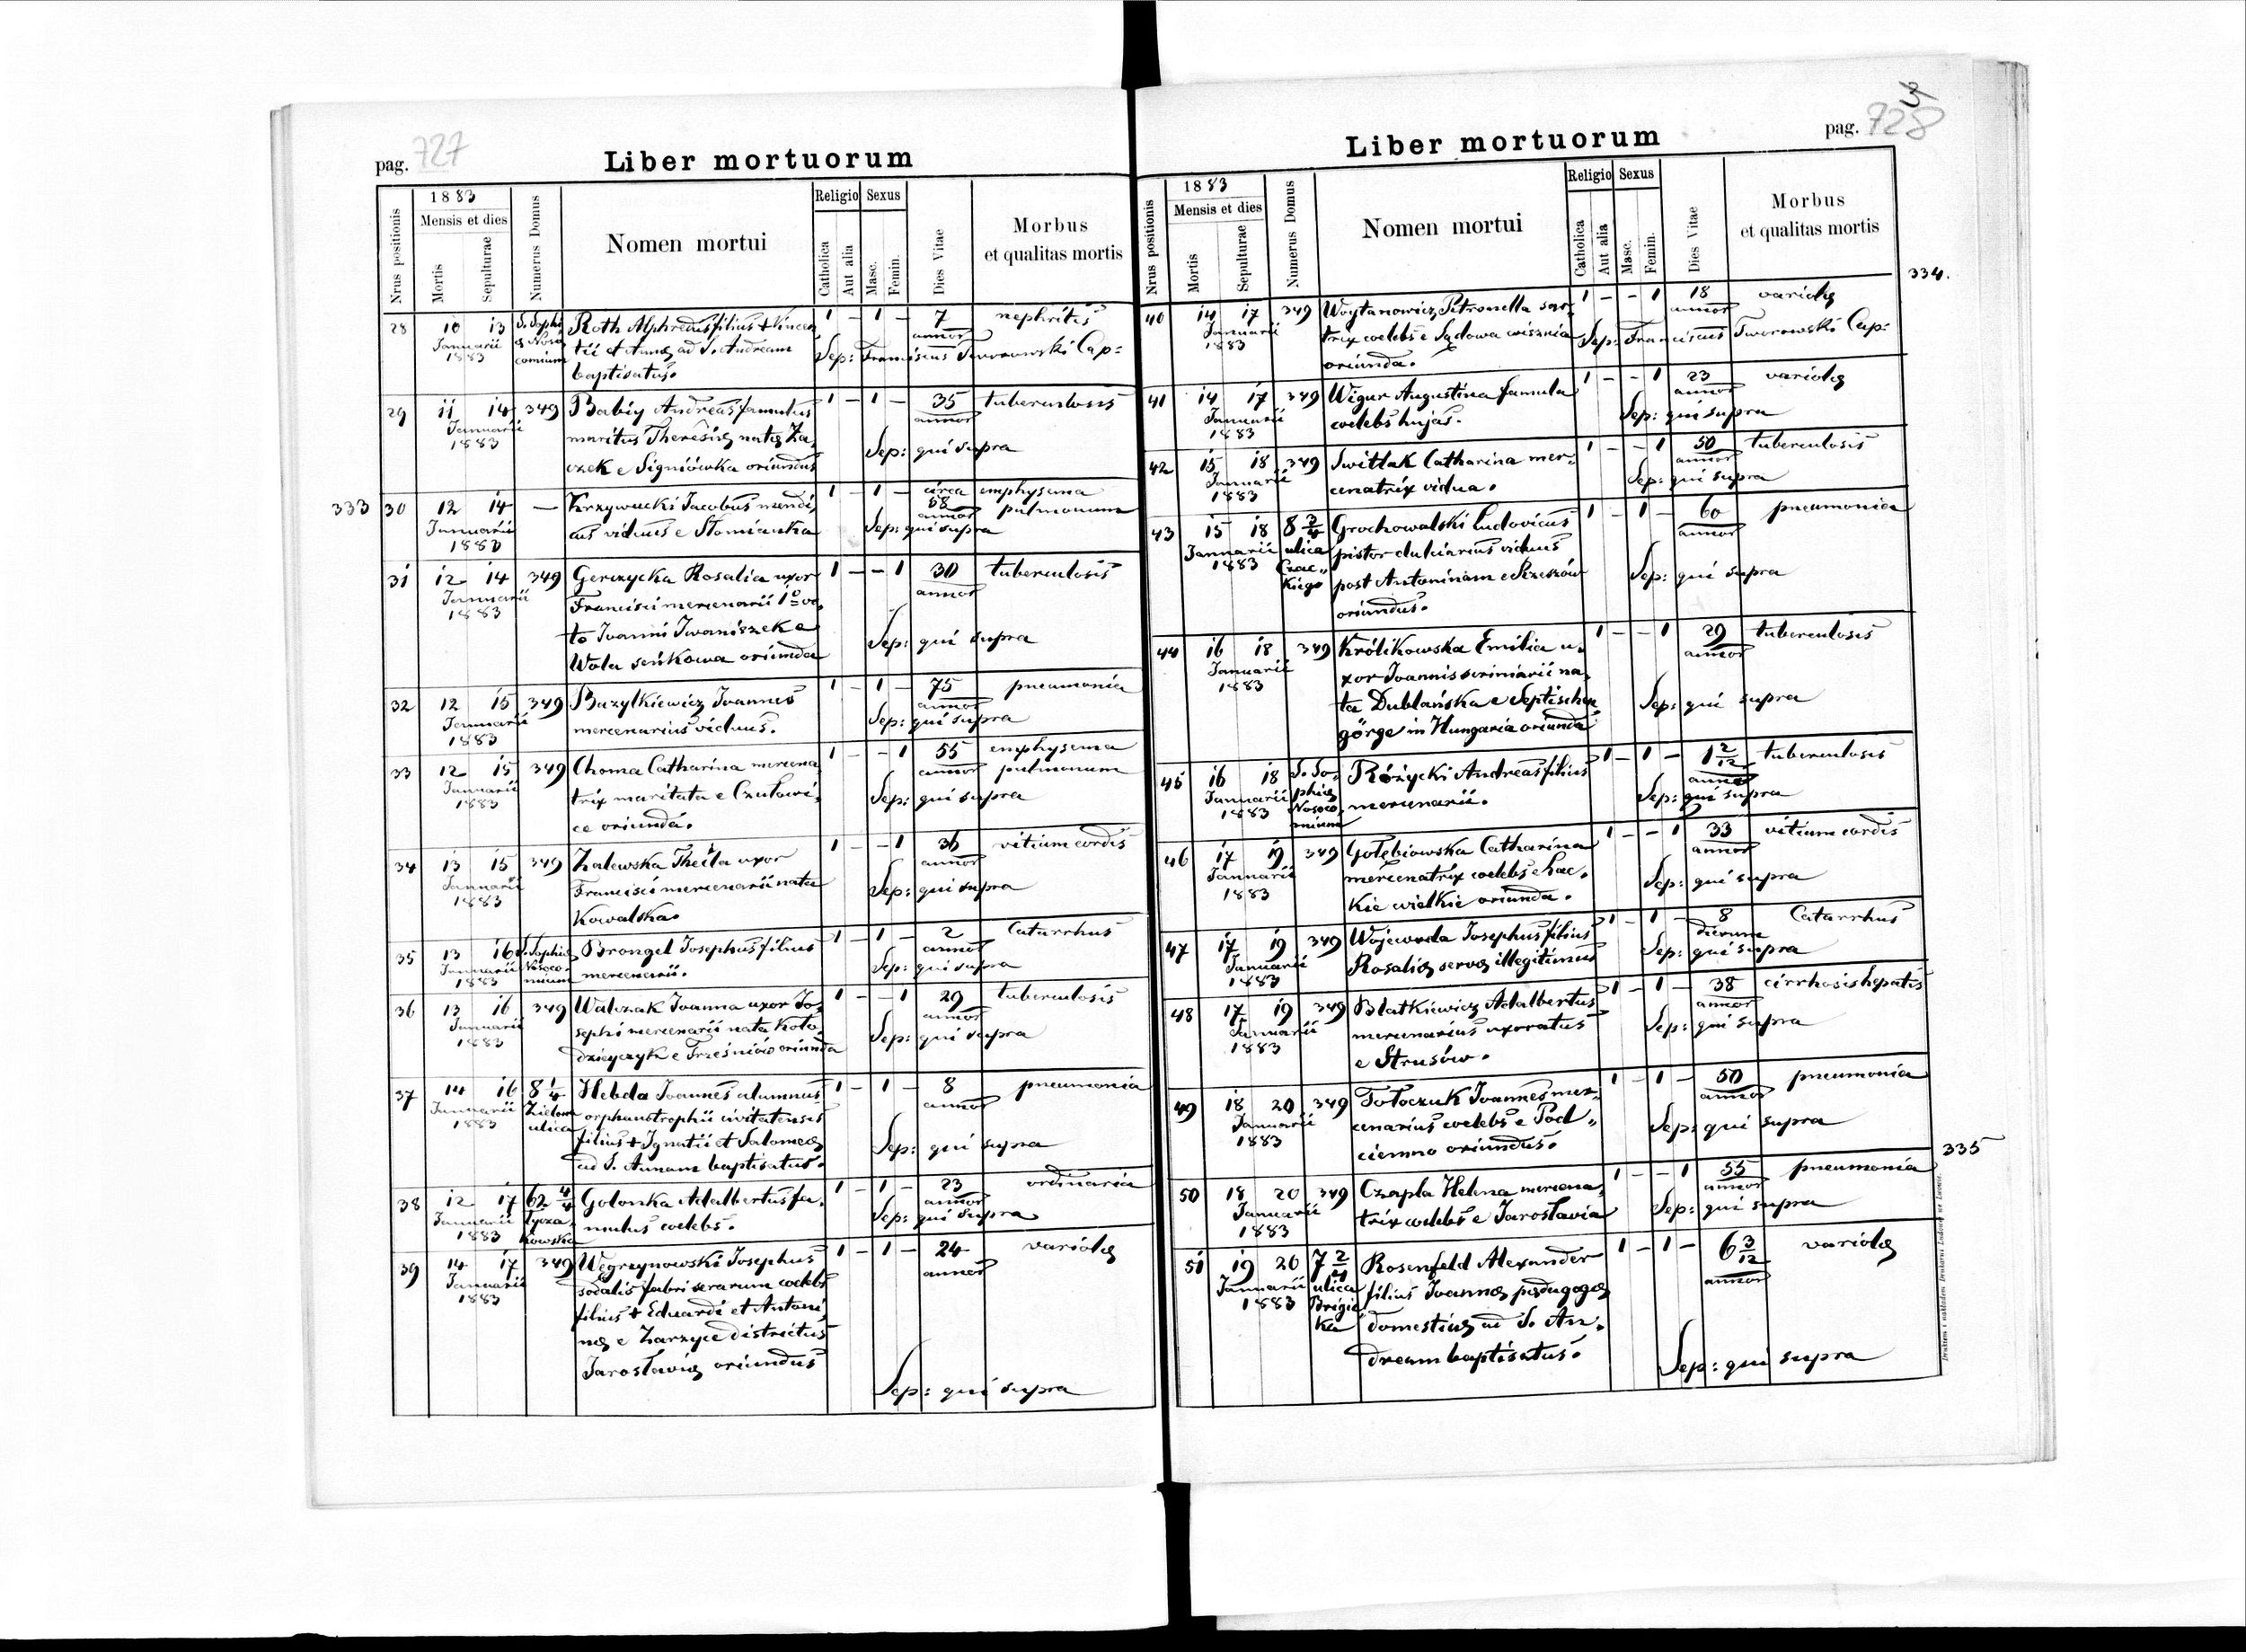 pag. 727
Liber mortuorum
Nrus positionis
1883
Mensis et dies
Mortis
Sepulturae
Numerus Domus
Nomen mortui
Religio
Catholica
Aut alia
Sexus
Masc.
Femin.
Dies Vitae
Morbus
et qualitas mortis
28 10 13 S. Sophi Roth Alphredus filius + Vincen 1 - 1 - 7 nephritis
Januarii æ Noso tii et Annæ ad S. Andream annor
1883 comium baptisatus. Sep: Franciscus Tworowski Cap:
29 11 14 349 Babiy Andreas famulus 1 - 1 - 35 tuberculosis
Januarii maritus Theresiæ natæ Za, annor
1883 czek e Signiówka oriundus Sep: qui supra
333 30 12 14 — Krzywucki Jacobus mendi, 1 - 1 - circa emphysema
Januarii cus viduus e Słomianka 68 pulmonum
1883 annor
Sep: qui supra
31 12 14 349 Gerczycka Rosalia uxor 1 - - 1 30 tuberculosis
Januarii Francisci mercenarii 1o vo, annor
1883 to Joanni Iwaniszek e
Wola seńkowa oriunda Sep: qui supra
32 12 15 349 Bazylkiewicz Joannes 1 - 1 - 75 pneumonia
Januarii mercenarius viduus. annor
1883 Sep: qui supra
33 12 15 349 Choma Catharina mercena 1 - - 1 55 emphysema
Januarii trix maritata e Czułowi, annor pulmonum
1883 ce oriunda. Sep: qui supra
34 13 15 349 Zalewska Thecla uxor 1 - - 1 36 vitium cordis
Januarii Francisci mercenarii nata annor
1883 Kowalska. Sep: qui supra
35 13 16 S. Sophiæ Brongel Josephus filius 1 - 1 - 2 Catarrhus
Januarii Nosoco- mercenarii. annor
1883 mium Sep: qui supra
36 13 16 349 Walczak Joanna uxor Jo, 1 - - 1 29 tuberculosis
Januarii sephi mercenarii nata Koło, annor
1883 dzieyczyk e Trześniów oriunda Sep: qui supra
37 14 16 8 1/4 Hebda Joannes alumnus 1 - 1 - 8 pneumonia
Januarii Zielona orphanotrophii civitatensis annor
1883 ulica filius + Ignatii et Salomeæ
ad S. Annam baptisatus. Sep: qui supra
38 12 17 62 4/4 Golonka Adalbertus fa, 1 - 1 - 23 ordinaria
Januarii Łycza, mulus coelebs. annor
1883 kowska Sep: qui supra
39 14 17 349 Węgrzynowski Josephus 1 - 1 - 24 variolæ
Januarii sodalis fabri serarum coelebs annor
1883 filius + Eduardi et Antoni,
næ e Zarzyce districtus
Jarosławiæ oriundus
Sep: qui supra
pag. 728
3
Liber mortuorum
Nrus positionis
1883
Mensis et dies
Mortis
Sepulturae
Numerus Domus
Nomen mortui
Religio
Catholica
Aut alia
Sexus
Masc.
Femin.
Dies Vitae
Morbus
et qualitas mortis
334.
40 14 17 349 Woytanowicz Petronella sar, 1 - - 1 18 variolæ
Januarii trix coelebs e Sądowa wisznia annor
1883 oriunda. Sep: Franciscus Tworowski Cap:
41 14 17 349 Wigur Augustina famula 1 - - 1 23 variolæ
Januarii coelebs hujas. annor
1883 Sep: qui supra
42 15 18 349 Switlak Catharina mer, 1 - - 1 50 tuberculosis
Januarii cenatrix vidua. annor
1883 Sep: qui supra
43 15 18 8 3/4 Grochowalski Ludovicus 1 - 1 - 60 pneumonia
Januarii ulica pistor dulciarius viduus annor
1883 Czac„ post Antoninam e Rzeszów
kiego oriundus. Sep: qui supra
44 16 18 349 Królikowska Emilia u, 1 - - 1 29 tuberculosis
Januarii xor Joannis scriniarii na, annor
1883 ta Dublańska e Septischen
görge in Hungaria oriunda Sep: qui supra
45 16 18 S. So, Różycki Andreas filius 1 - 1 - 1 2/12 tuberculosis
Januarii phiæ mercenarii. annor
1883 Nosoco, Sep: qui supra
mium
46 17 19 349 Gołębiowska Catharina 1 - - 1 33 vitium cordis
Januarii mercenatrix coelebs e Łac, annor
1883 kie wielkie oriunda. Sep: qui supra
47 17 19 349 Wojewoda Josephus filius 1 - 1 - 8 Catarrhus
Januarii Rosaliæ servæ illegitimus dierum
1883 Sep: qui supra
48 17 19 349 Blatkiewicz Adalbertus 1 - 1 - 38 cirrhosis hepatis
Januarii mercenarius uxoratus annor
1883 e Strusów. Sep: qui supra
49 18 20 349 Tołoczuk Joannes mer, 1 - 1 - 50 pneumonia
Januarii cenarius coelebs e Pod„ annor
1883 ciemno oriundus. Sep: qui supra
335
50 18 20 349 Czapla Helena mercena, 1 - - 1 55 pneumonia
Januarii trix coelebs e Jarosłavia annor
1883 Sep: qui supra
51 19 20 7 2/4 Rosenfeld Alexander 1 - 1 - 6 3/12 variolæ
Januarii ulica filius Joannæ pædagogæ annor
1883 Brygid domesticæ ad S. An,
ka dream baptisatus.
Sep: qui supra
Drukiem i nakładem Drukarni Ludowej we Lwowie.